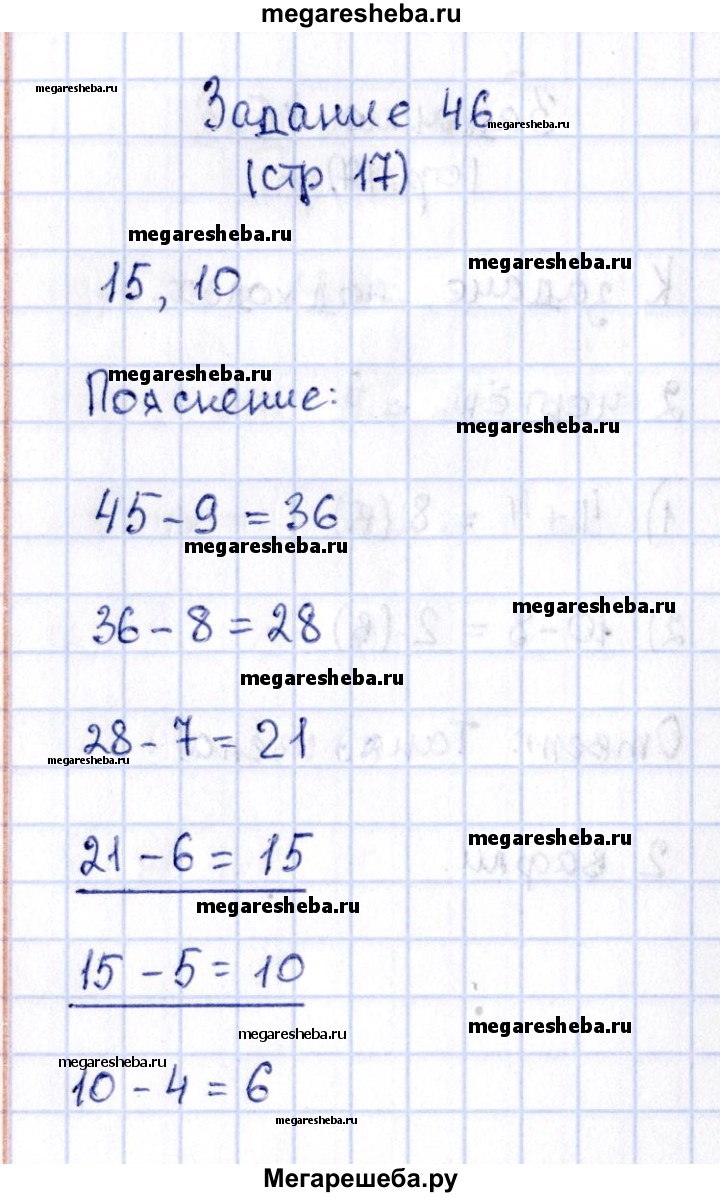 megaresheba.ru
megaresheba.ru
Задание 46
megaresheba.ru
(стр. 17)
megaresheba.ru
megaresheba.ru
15, 10
megaresheba.ru
Пояснение:
megaresheba.ru
45 - 9 = 36
megaresheba.ru
megaresheba.ru
36 - 8 = 28
megaresheba.ru
28 - 7 = 21
megaresheba.ru
megaresheba.ru
21 - 6 = 15
megaresheba.ru
15 - 5 = 10
megaresheba.ru
megaresheba.ru
megaresheba.ru
10 - 4 = 6
megaresheba.ru
Мегарешеба.ру